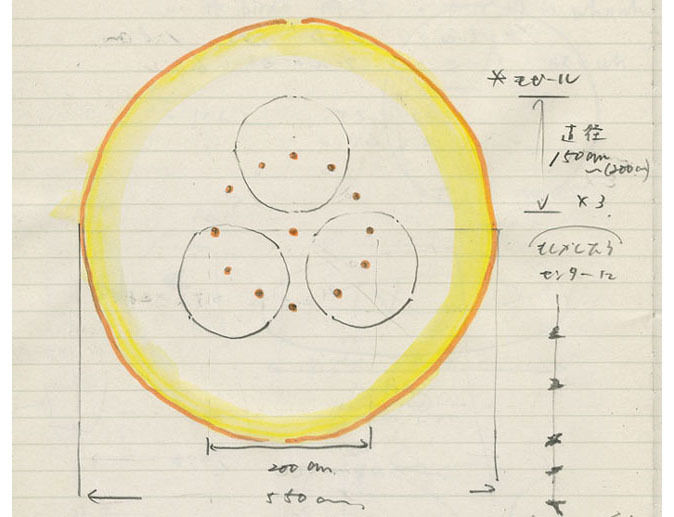 *モビール
直径
150cm
〜(200cm)
×3
もしかしたら
センターに
200cm
550cm